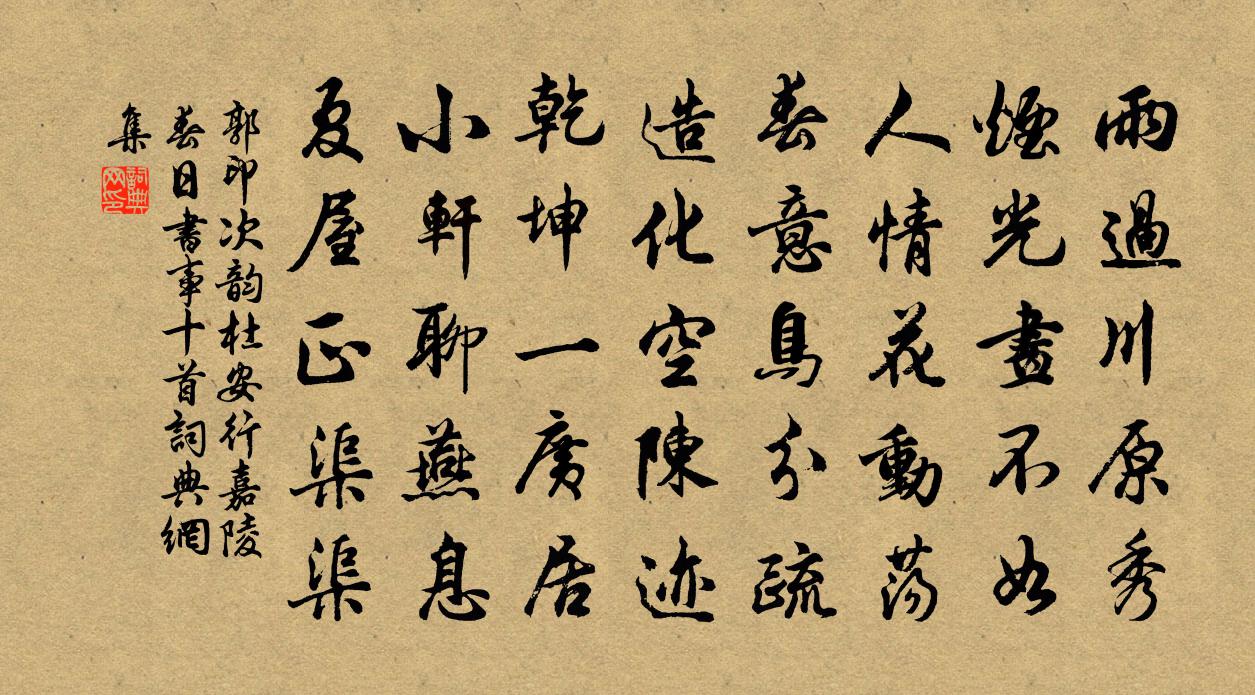 雨過川原秀
煙光畫不如
人情花動蕩
春意鳥分疏
造化空陳迹
乾坤一廣居
小軒聊燕息
夏屋正渠渠
郭印次韵杜安行嘉陵
春日書事十首詞典網
集
詞典网印